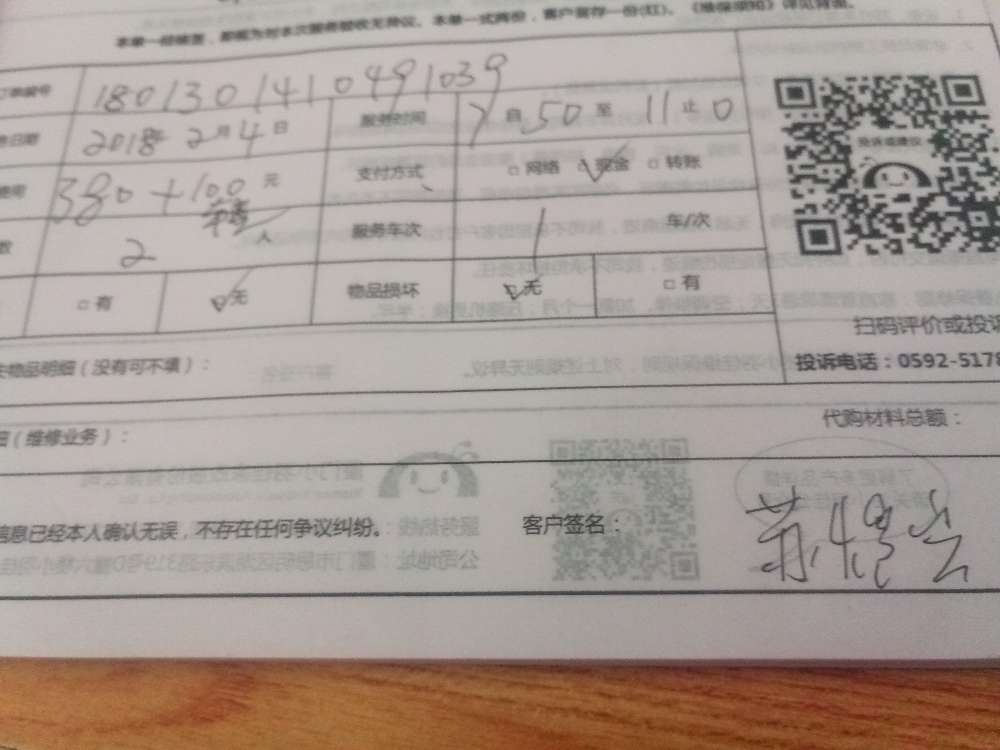 本单一经填写，即视为对本次服务验收无异议。本单一式两份，客户留存一份(红)。《维保须知》详见背面。
订单编号 180130141049 1039
日期 2018年 2月 4日 服务时间 7自50至 11止0
费用 380 + 100 元 支付方式 □网络 ☑现金 □转账
数 2 人 服务车次 1 车/次
□有 ☑无 物品损坏 ☑无 □有
投诉或建议
扫码评价或投诉
物品明细（没有可不填）：
投诉电话：0592-5178
代购材料总额：
（维修业务）：
信息已经本人确认无误，不存在任何争议纠纷。 客户签名：